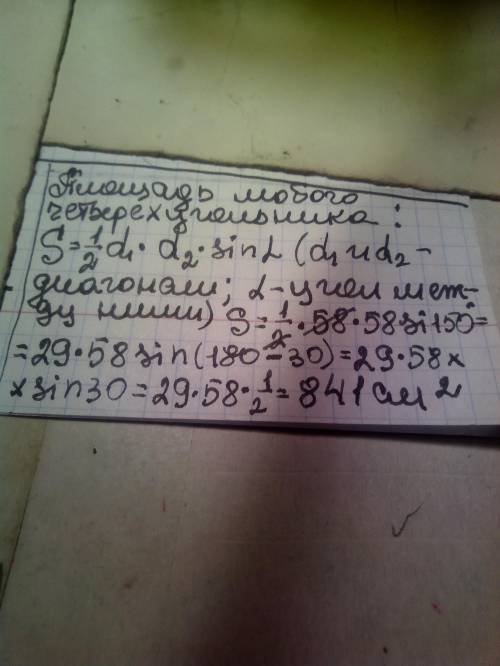 Площадь любого
четырехугольника:
S=1/2 d₁· d₂·sin L (d₁ и d₂-
диагонали; L-угол меж-
ду ними) S=1/2·58·58 sin 150°=
=29·58 sin(180-30)=29·58×
× sin30=29·58·1/2=841 см²